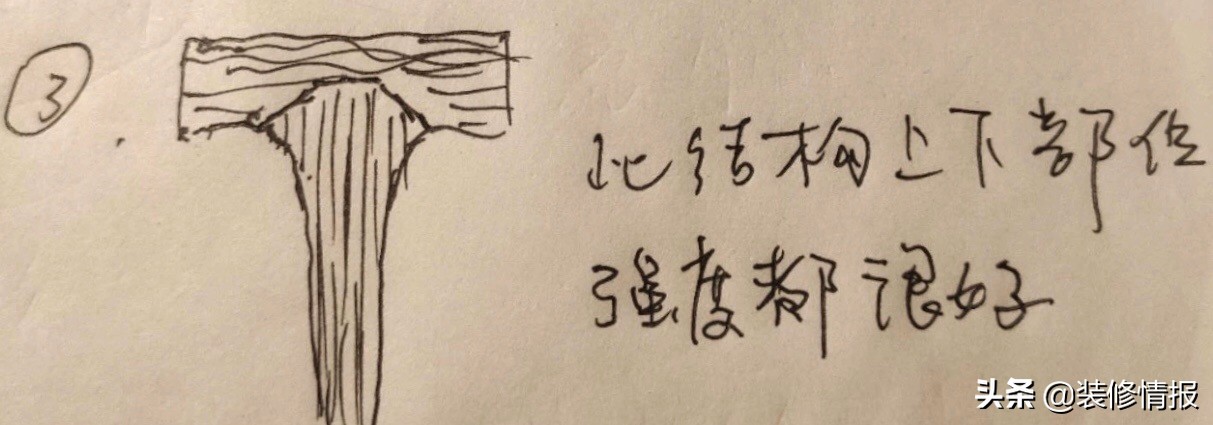 ③
此结构上下部位
强度都很好
头条 @装修情报